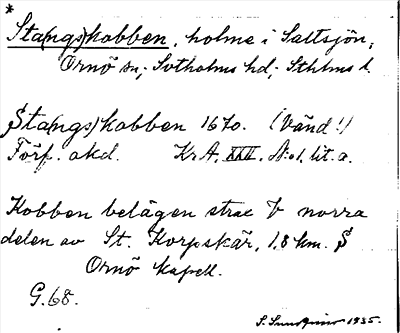 *
Sta(ngs)kobben, holme i Saltsjön,
Ornö sn, Sotholms hd, Sthlms l.
Sta(ngs)kobben 1670. (Vänd!)
Förf. okd. KrA. XXII. N:o 1. lit. a.
Kobben belägen strax V norra
delen av St. Korpskär, 1,8 km. S
Ornö kapell.
G. 68.
S. Sundqvist 1935.